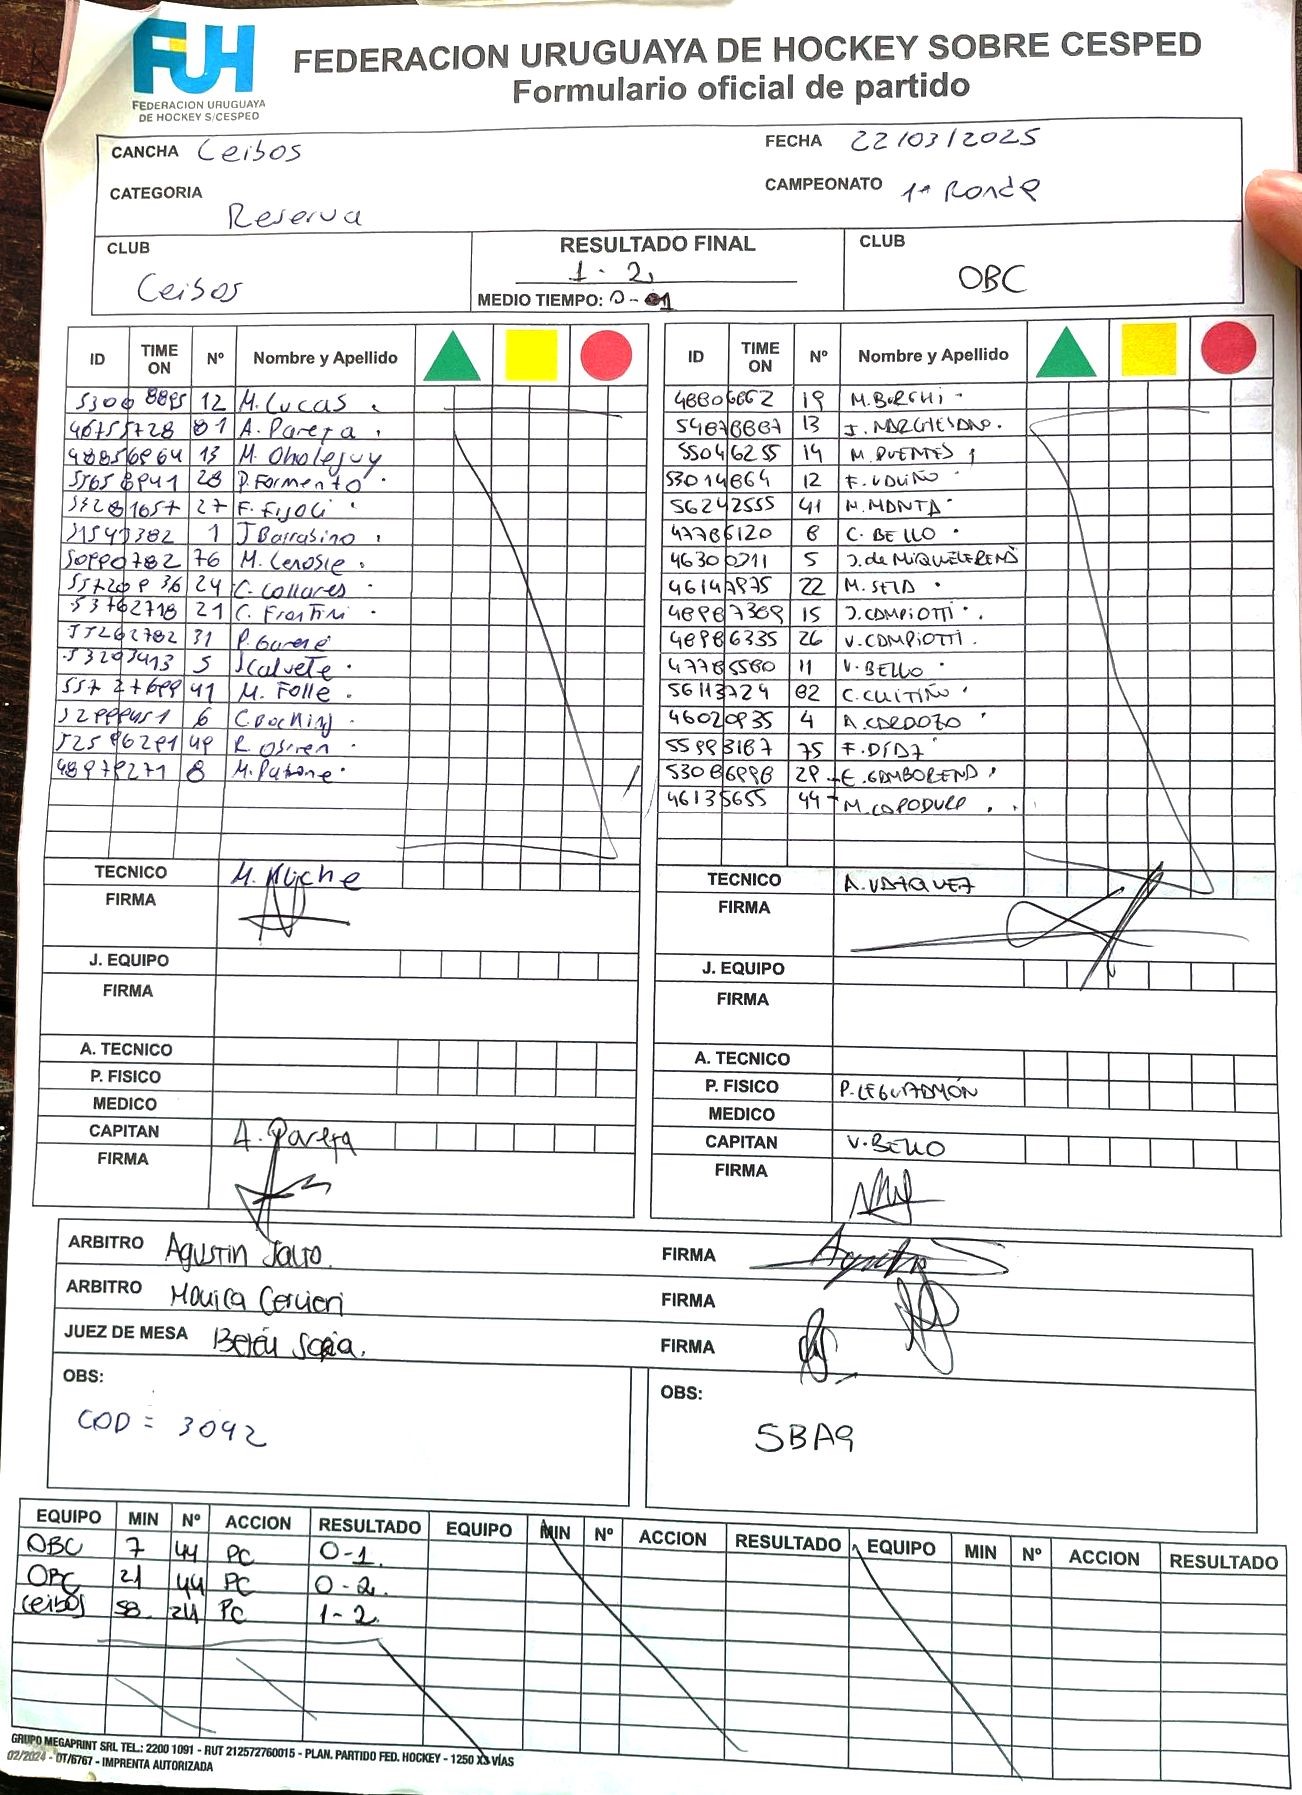 FUH
FEDERACION URUGUAYA
DE HOCKEY S/CESPED
FEDERACION URUGUAYA DE HOCKEY SOBRE CESPED
Formulario oficial de partido
CANCHA Ceibos
FECHA 22/03/2025
CATEGORIA Reserva
CAMPEONATO 1ª Ronda
CLUB Ceibos
RESULTADO FINAL 1 - 2
MEDIO TIEMPO: 0 - 1
CLUB OBC
ID TIME ON Nº Nombre y Apellido
12 M. Lucas
46755728 81 A. Pareja
48856964 13 M. Oholeguy
28 P. Formento
27 F. Fijoli
1 J Barrabino
50990782 76 M. Lenosle
24 C. Collares
53762718 21 C. Frantini
55262782 31
53203413 5 J Calvete
557 27699 41 M. Folle
6
49
48979271 8 M. Patrone
TECNICO
FIRMA
J. EQUIPO
FIRMA
A. TECNICO
P. FISICO
MEDICO
CAPITAN A. Pareja
FIRMA
ID TIME ON Nº Nombre y Apellido
48806862 19 M. BORCHI
54878887 13 J. MARCHESANO
55046255 14 M. PUENTES
53014864 12 F. VDIÑO
56242555 41 M. MONTA
47786120 8 C. BELLO
46300211 5
46147975 22 M. SEIA
48987389 15 J. COMPIOTTI
48986335 26 V. COMPIOTTI
47785580 11 V. BELLO
56113724 82 C. CUITIÑO
46020935 4 A. CARDOZO
55993187 75 F. DIAZ
53086998 29 E. GAMBORENA
46135655 44 M. CAPODURP
TECNICO A. VAZQUEZ
FIRMA
J. EQUIPO
FIRMA
A. TECNICO
P. FISICO P. LEGUIZAMÓN
MEDICO
CAPITAN V. BELLO
FIRMA
ARBITRO Agustin Salto.
FIRMA
ARBITRO Monica Cervieri
FIRMA
JUEZ DE MESA Belén Soria.
FIRMA
OBS:
COD = 3092
OBS:
SBA9
EQUIPO MIN Nº ACCION RESULTADO EQUIPO MIN Nº ACCION RESULTADO EQUIPO MIN Nº ACCION RESULTADO
OBC 7 44 PC 0-1.
OBC 21 44 PC 0-2.
Ceibos 58 24 PC 1-2
GRUPO MEGAPRINT SRL TEL.: 2200 1091 - RUT 212572760015 - PLAN. PARTIDO FED. HOCKEY - 1250 X3 VÍAS
02/2024 - OT/6767 - IMPRENTA AUTORIZADA